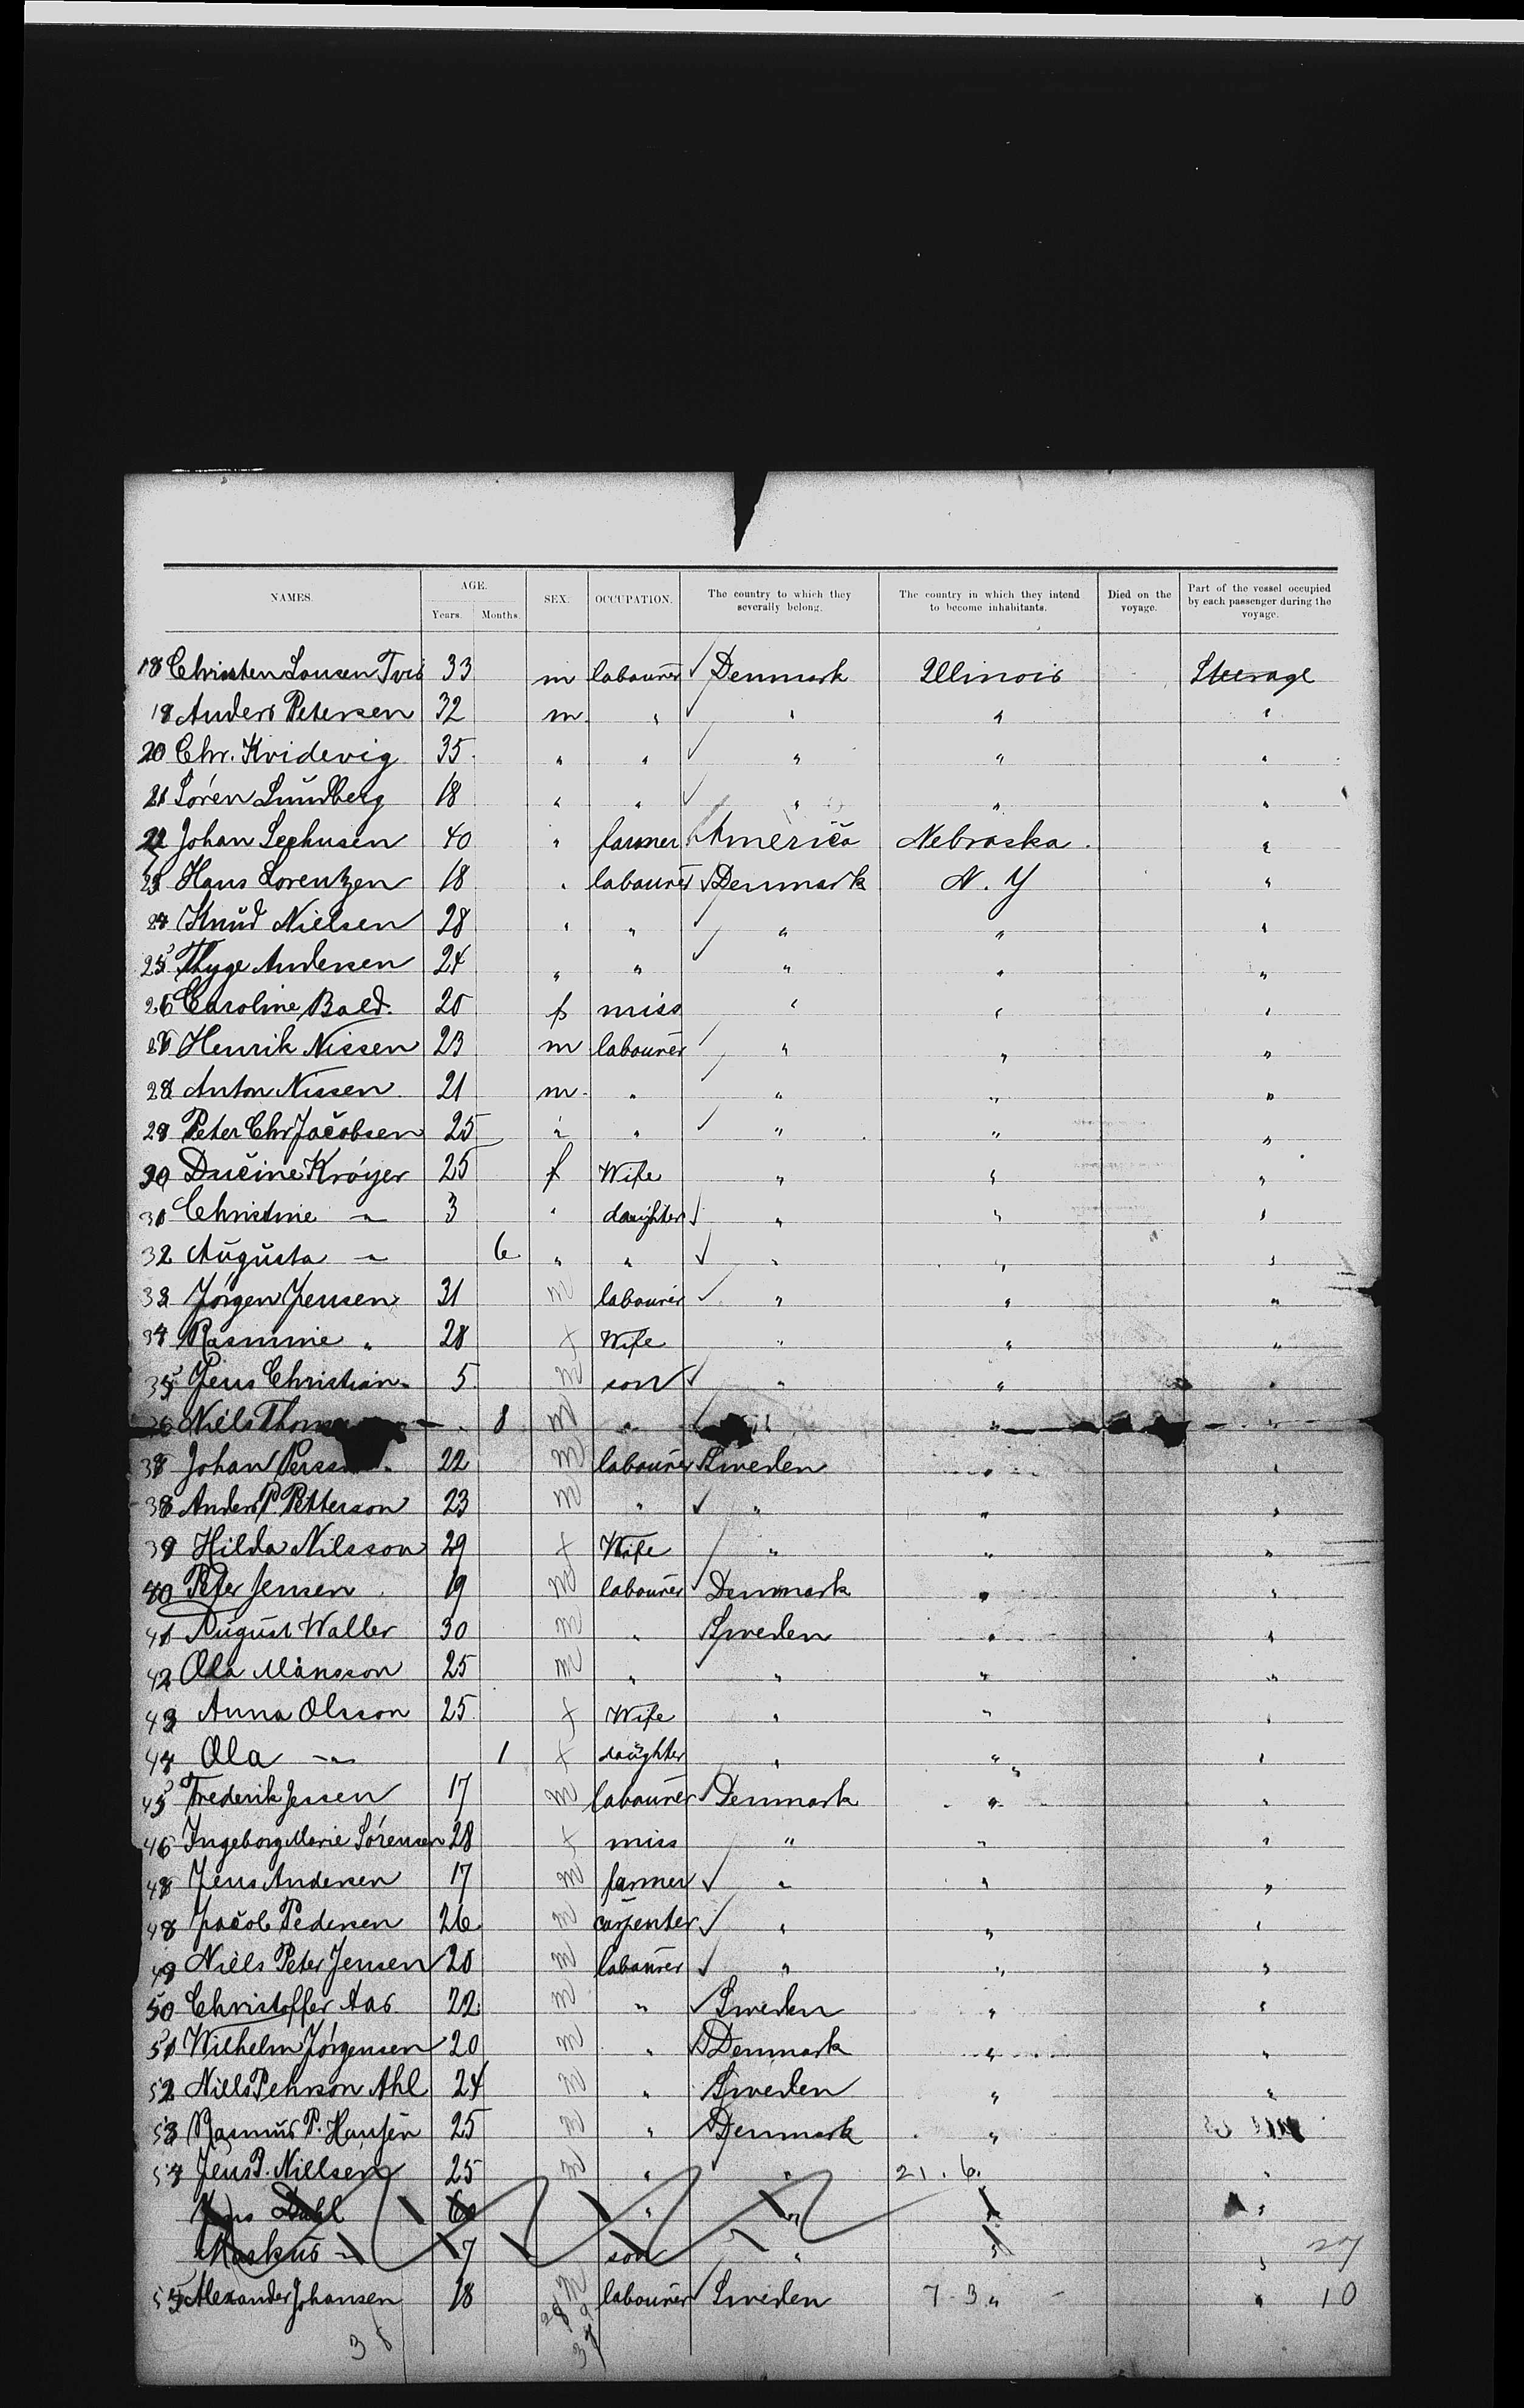 NAMES. AGE. SEX. OCCUPATION. The country to which they severally belong. The country in which they intend to become inhabitants. Died on the voyage. Part of the vessel occupied by each passenger during the voyage.
Years. Months.
18 Christen Lousen Tvis 33 m labourer ✓ Denmark Illinois Steerage
19 Anders Petersen 32 m. " ✓ " " "
20 Chr. Kvidevig 35. " " ✓ " " "
21 Sören Lundberg 18 " " ✓ " " "
22 Johan Seehusen 40 " farmer America Nebraska. "
23 Hans Lorentzen 18 " labourer ✓ Denmark N. Y "
24 Knud Nielsen 28 " " ✓ " " "
25 Thyge Andersen 24 " " ✓ " " "
26 Caroline Bald. 20 f miss " " "
27 Henrik Nissen 23 m labourer ✓ " " "
28 Anton Nissen 21 m. " ✓ " " "
29 Peter Chr Jacobsen 25 " " ✓ " " "
30 Ducine Kröyer 25 f Wife " " "
31 Christine " 3 " daughter ✓ " " "
32 Augusta " 6 " " ✓ " " "
33 Jörgen Jensen 31 m labourer ✓ " " "
34 Rasmine " 28 f Wife " " "
35 Jens Christian " 5. m son ✓ " " "
36 Niels 8 m " ✓ " " "
37 Johan 22 m labourer Sweden " "
38 Anders P. Petterson 23 m " ✓ " " "
39 Hilda Nilsson 29 f Wife ✓ " " "
40 Peter Jensen 19 m labourer ✓ Denmark " "
41 August Waller 30 m " Sweden " "
42 Ola Månsson 25 m " ✓ " " "
43 Anna Olsson 25. f Wife " " "
44 Ola " 1 f daughter " " "
45 Frederik Jessen 17 m labourer ✓ Denmark " "
46 Ingeborg Marie Sörensen 28 f miss " " "
48 Jens Andersen 17 m farmer ✓ " " "
48 Jacob Pedersen 26 m carpenter ✓ " " "
49 Niels Peter Jensen 20 m labourer ✓ " " "
50 Christoffer Aas 22 m " ✓ Sweden " "
51 Wilhelm Jörgensen 20 m " ✓ Denmark " "
52 Niels Pehrson Ahl 24 m " Sweden " "
53 Rasmus P. Hansen 25 m " ✓ Denmark " "
54 Jens P. Nielsen 25 m " " 21. 6. "
Jens Dahl " " "
Markus " 7 son " " " 27
55 Alexander Johansen 18 m labourer ✓ Sweden 7-3 " " 10
38